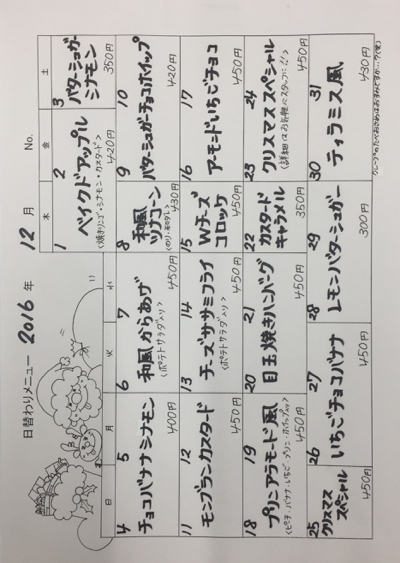 日替わりメニュー 2016 年 12 月 No.
日 月 火 水 木 金 土
1 2
ベイクドアップル
<焼きリンゴ・シナモン・カスタード>
420円
3
バターシュガー
シナモン
350円
4 5
チョコバナナシナモン
400円
6 7
和風からあげ
<ポテトサラダ入り>
450円
8
和風
ツナコーン
430円
9 10
バターシュガーチョコホイップ
420円
11 12
モンブランカスタード
450円
13 14
チーズササミフライ
<ポテトサラダ入り>
450円
15
Wチーズ
コロッケ
450円
16 17
アーモンドいちごチョコ
450円
18 19
プリンアラモード風
<ピーチ・バナナ・いちご・プリン・ホイップ入り>
450円
20 21
目玉焼きハンバーグ
450円
22
カスタード
キャラメル
350円
23 24
クリスマススペシャル
(詳細はお気軽にスタッフに!!)
450円
25
クリスマス
スペシャル
450円
26 27
いちごチョコバナナ
450円
28 29
レモンバターシュガー
300円
30 31
ティラミス風
430円
クレープのたべおさめはおすみですか…?(笑)